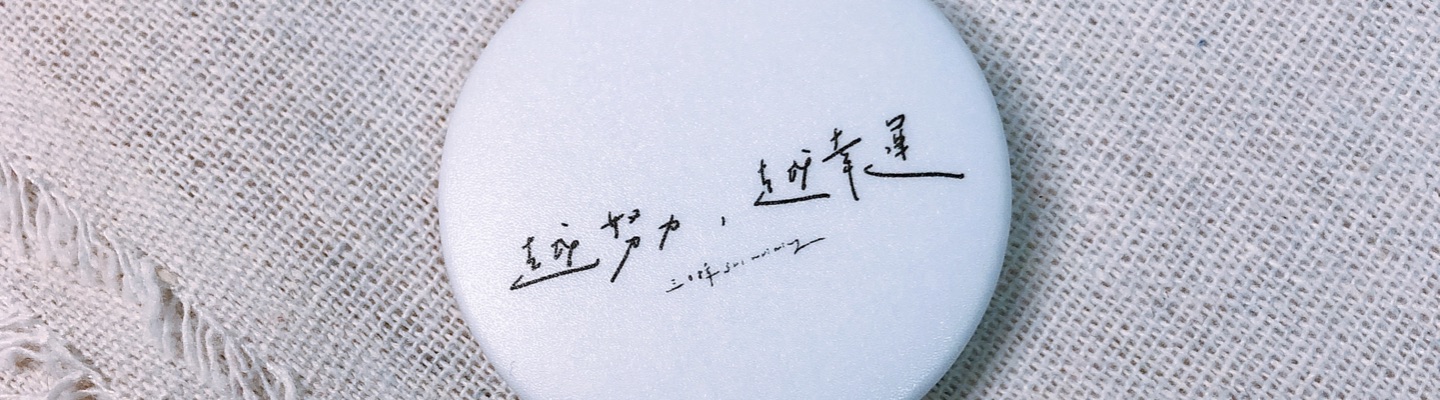 越努力，越幸運